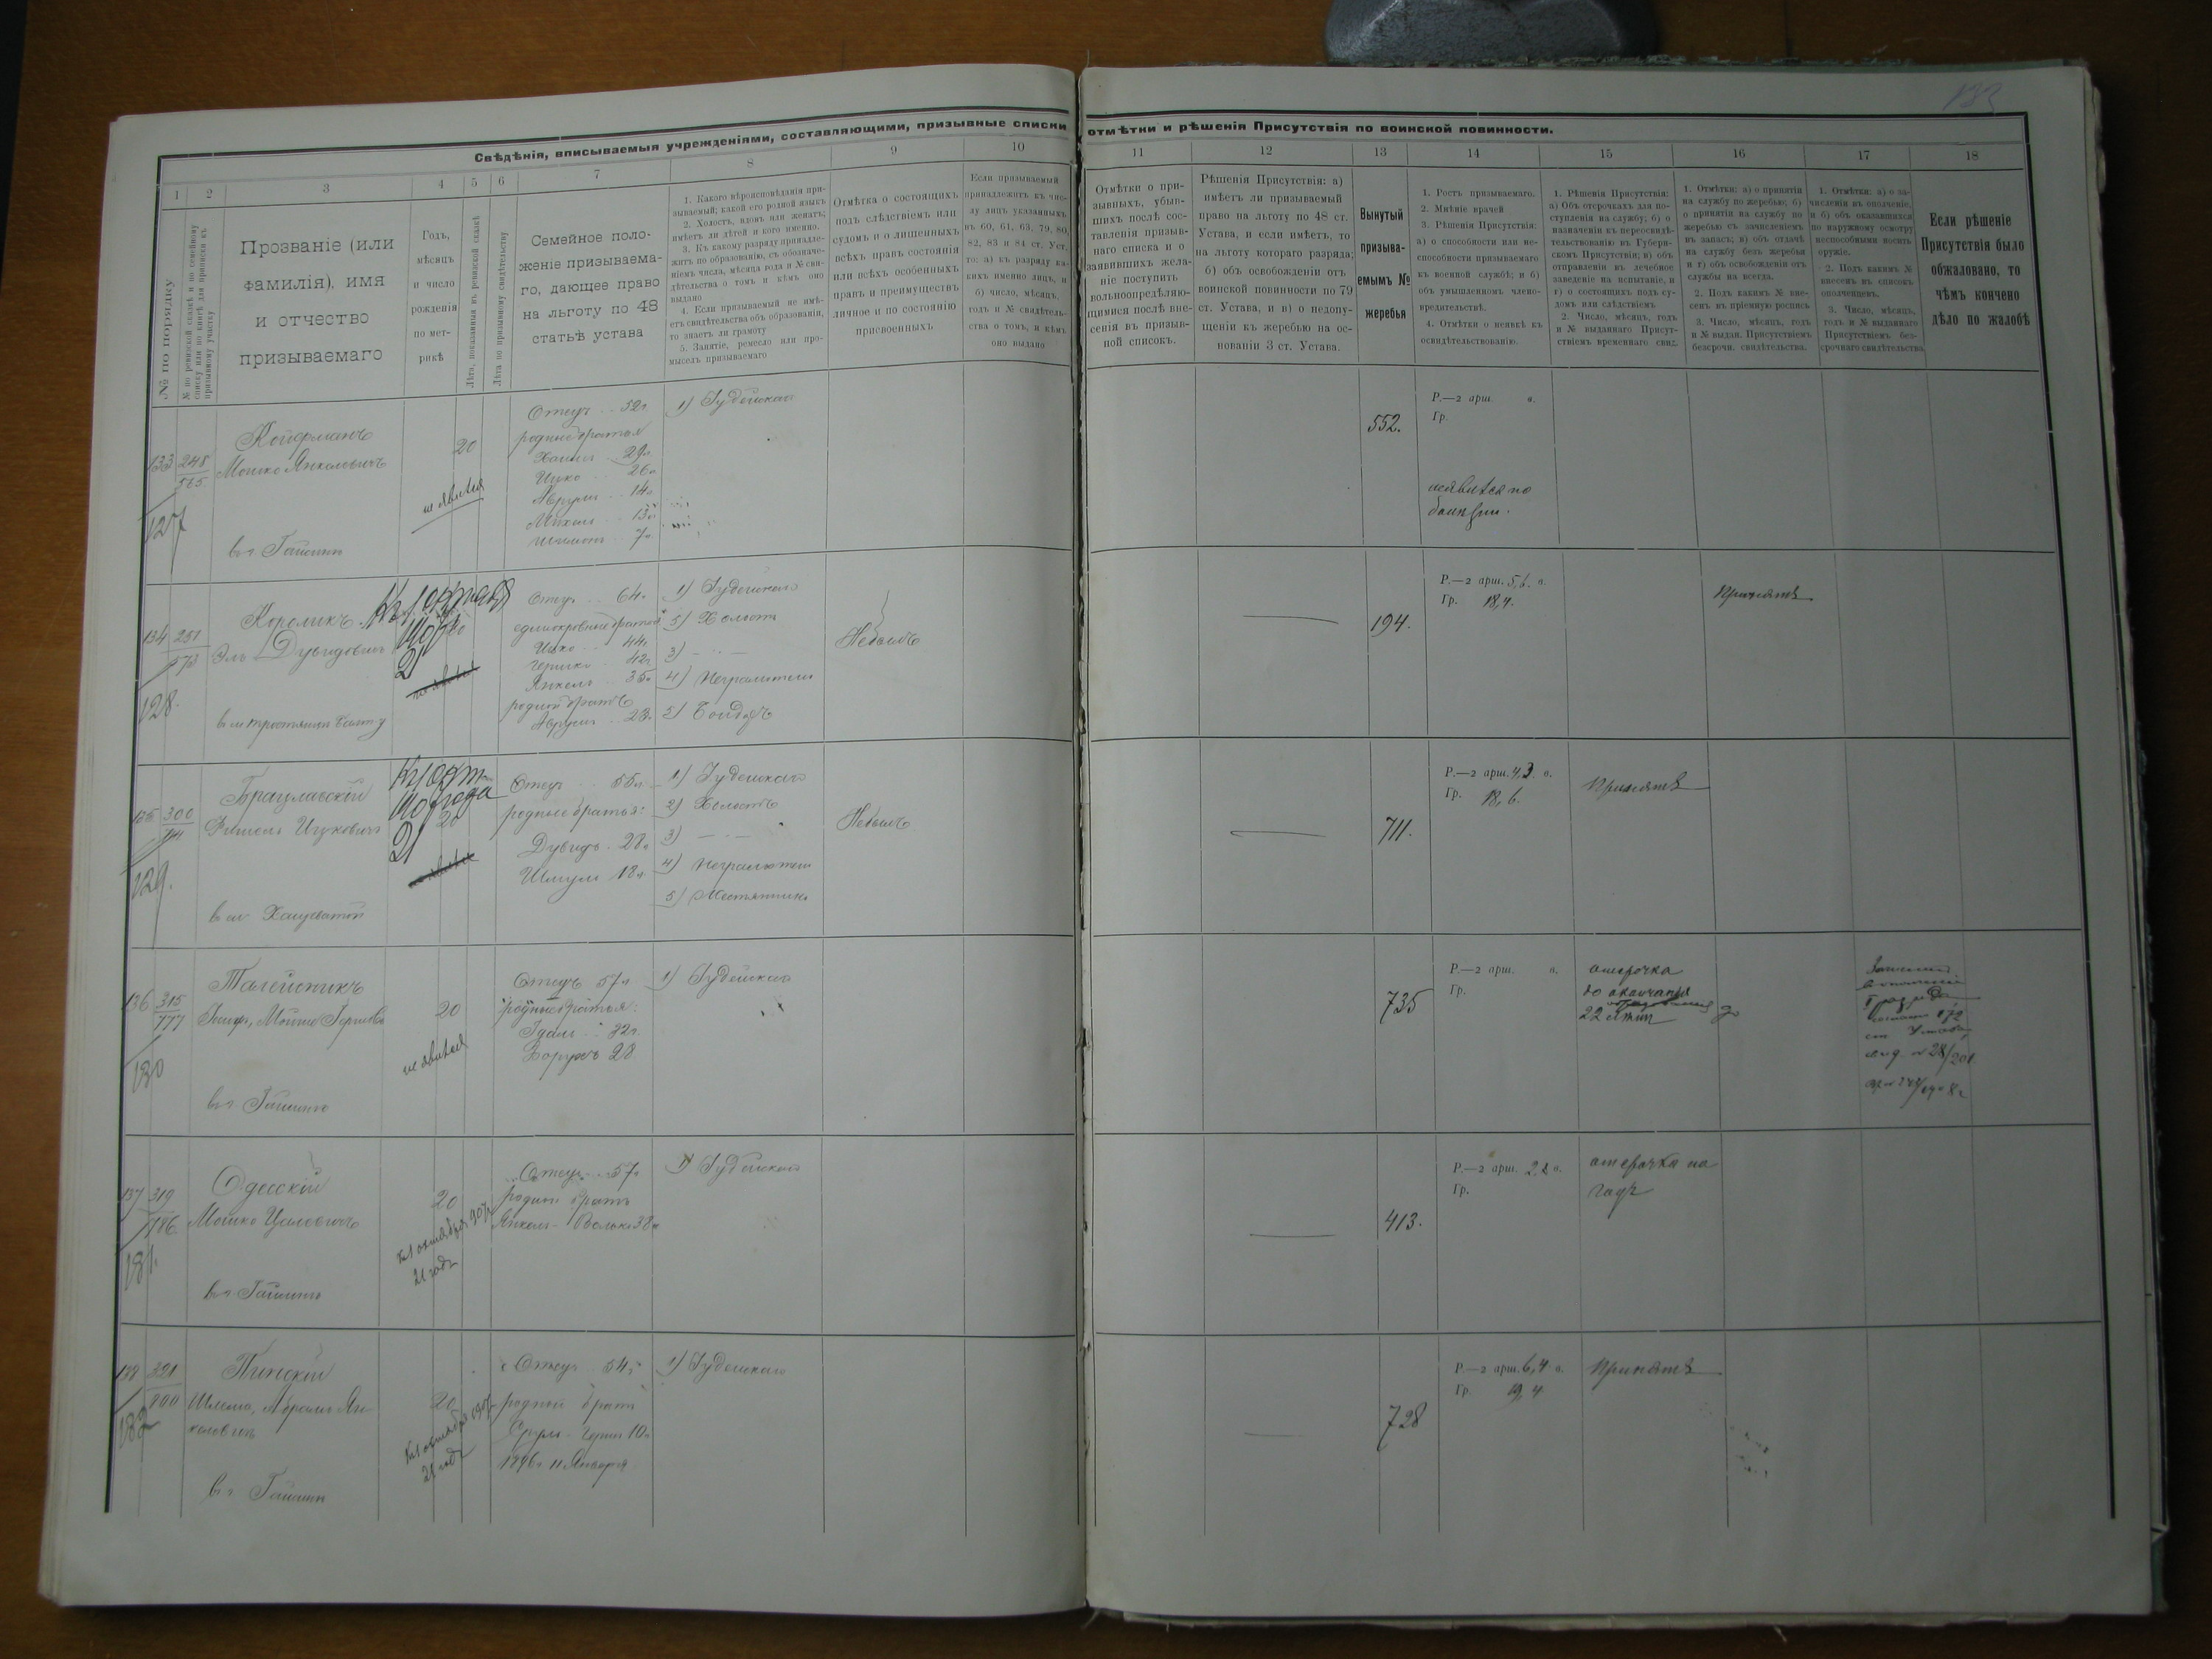 133
Свѣдѣнія, вписываемыя учрежденіями, составляющими, призывные списки
отмѣтки и рѣшенія Присутствія по воинской повинности.
1 2 3 4 5 6 7 8 9 10
11 12 13 14 15 16 17 18
№ по порядку
№ по ревизской сказкѣ и по семейному
списку или по книгѣ для приписки къ
призывному участку
Прозваніе (или
фамилія), имя
и отчество
призываемаго
Годъ,
мѣсяцъ
и число
рожденія
по мет-
рикѣ
Лѣта, показанныя въ ревизской сказкѣ
Лѣта по призывному свидѣтельству
Семейное поло-
женіе призываема-
го, дающее право
на льготу по 48
статьѣ устава
1. Какого вѣроисповѣданія при-
зываемый; какой его родной языкъ
2. Холостъ, вдовъ или женатъ;
имѣетъ ли дѣтей и кого именно.
3. Къ какому разряду принадле-
житъ по образованію, съ обозначе-
ніемъ числа, мѣсяца года и № сви-
дѣтельства о томъ и кѣмъ оно
выдано
4. Если призываемый не имѣ-
етъ свидѣтельства объ образованіи,
то знаетъ ли грамоту
5. Занятіе, ремесло или про-
мыселъ призываемаго
Отмѣтка о состоящихъ
подъ слѣдствіемъ или
судомъ и о лишенныхъ
всѣхъ правъ состоянія
или всѣхъ особенныхъ
правъ и преимуществъ
личное и по состоянію
присвоенныхъ
Если призываемый
принадлежитъ къ чис-
лу лицъ указанныхъ
въ 60, 61, 63, 79, 80,
82, 83 и 84 ст. Уст.
то: а) къ разряду ка-
кихъ именно лицъ, и
б) число, мѣсяцъ,
годъ и № свидѣтель-
ства о томъ, и кѣмъ
оно выдано
Отмѣтки о при-
зывныхъ, убыв-
шихъ послѣ сос-
тавленія призыв-
наго списка и о
заявившихъ жела-
ніе поступить
вольноопредѣляю-
щимися послѣ вне-
сенія въ призыв-
ной списокъ.
Рѣшенія Присутствія: а)
имѣетъ ли призываемый
право на льготу по 48 ст.
Устава, и если имѣетъ, то
на льготу котораго разряда;
б) объ освобожденіи отъ
воинской повинности по 79
ст. Устава, и в) о недопу-
щеніи къ жеребью на ос-
нованіи 3 ст. Устава.
Вынутый
призыва-
емымъ №
жеребья
1. Ростъ призываемаго.
2. Мнѣніе врачей
3. Рѣшенія Присутствія:
а) о способности или не-
способности призываемаго
къ военной службѣ; и б)
объ умышленномъ члено-
вредительствѣ.
4. Отмѣтки о неявкѣ къ
освидѣтельствованію.
1. Рѣшенія Присутствія:
а) Объ отсрочкахъ для по-
ступленія на службу; б) о
назначеніи къ переосвидѣ-
тельствованію въ Губерн-
скомъ Присутствіи; в) объ
отправленіи въ лечебное
заведеніе на испытаніе, и
г) о состоящихъ подъ су-
домъ или слѣдствіемъ
2. Число, мѣсяцъ, годъ
и № выданнаго Присут-
ствіемъ временнаго свид.
1. Отмѣтки: а) о принятіи
на службу по жеребью; б)
о принятіи на службу по
жеребью съ зачисленіемъ
въ запасъ; в) объ отдачѣ
на службу безъ жеребья
и г) объ освобожденіи отъ
службы на всегда.
2. Подъ какимъ № вне-
сенъ въ пріемную роспись
3. Число, мѣсяцъ, годъ
и № выдан. Присутствіемъ
безсрочн. свидѣтельства.
1. Отмѣтки: а) о за-
численіи въ ополченіе,
и б) объ оказавшихся
по наружному осмотру
неспособными носить
оружіе.
2. Подъ какимъ №
внесенъ въ списокъ
ополченцевъ.
3. Число, мѣсяцъ,
годъ и № выданнаго
Присутствіемъ без-
срочнаго свидѣтельства
Если рѣшеніе
Присутствія было
обжаловано, то
чѣмъ кончено
дѣло по жалобѣ
133 248
565.
127
Койфманъ
Мошко Янкеловичъ
в г. Гайсинѣ
20
не явился
Отецъ 52 г.
родные братья
Хаимъ 29 л.
Ицко 26 л.
Аврумъ 14 л.
Михель 13 л.
7 л.
1) Іудейская
552.
Р.—2 арш. в.
Гр.
неявился по
болѣзни.
134 251
573
128.
Короликъ
Эль Дувидовичъ
20
21
не явился
Отецъ 64 л.
единокровные братья
Ицко 44 л.
Гершко 42 г.
Янкель 35 л.
родной братъ
Аврумъ 23 л.
1) Іудейскаго
2) Холостъ
3) — " —
4) Неграмотенъ
5) Бондарь
Небылъ
194.
Р.—2 арш. 5,6. в.
Гр. 18,4.
Принятъ
135 300
129.
Брацлавскій
Фишель Ицковичъ
в м. Хащеватой
Къ 1 окт
20
21
не явился
Отецъ 55 л.
родные братья:
Дувидъ 28 л.
Шмуль 18 л.
1) Іудейскаго
2) Холостъ
3) — " —
4) Неграмотенъ
5)
Небылъ
711.
Р.—2 арш. 4,3. в.
Гр. 18,6.
Принятъ
136 315
777
130
Талейсникъ
Мойше
в г. Гайсинѣ
20
не явился
Отецъ 57 л.
родные братья:
Идель 32 г.
Борухъ 28
1) Іудейская
735
Р.—2 арш. в.
Гр.
отсрочка
до окончанія
22 лѣтн
Зачисленъ
I разряда
172
ст Устава
28/201
137 319
786.
131.
Одесскій
Мошко Цалевичъ
в г. Гайсинѣ
20
Къ 1 октября 907 г.
21 годъ
Отецъ 57 л.
родной братъ
Янкель-Волько 38 л.
1) Іудейскаго
413.
Р.—2 арш. 2,8 в.
Гр.
отсрочка на
годъ
138 321
800
132
Пинскій
Шлема, Абрамъ Ян-
келовичъ
в г. Гайсинѣ
20
Къ 1 октября 1907 г.
21 годъ
Отецъ 54 г.
родной братъ
Срулъ-Герш 10 л.
1896 г. 11 Января
1) Іудейскаго
728
Р.—2 арш. 6,4 в.
Гр. 19,4
Принятъ